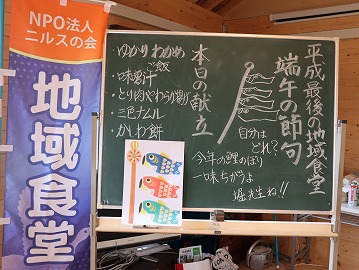 NPO法人
ニルスの会
地域食堂
平成最後の地域食堂
端午の節句
自分は
どれ?
今年の鯉のぼり
一味ちがうよ
堀先生ね!!
本日の献立
・ゆかりわかめ
ご飯
・味噌汁
・とり肉やわらか揚げ
・三色ナムル
・かしわ餅